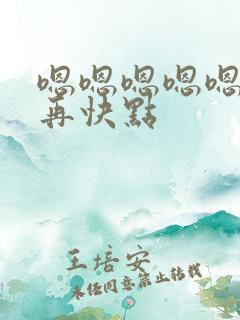 嗯嗯嗯嗯嗯
再快點
王培安
未经同意禁止转载